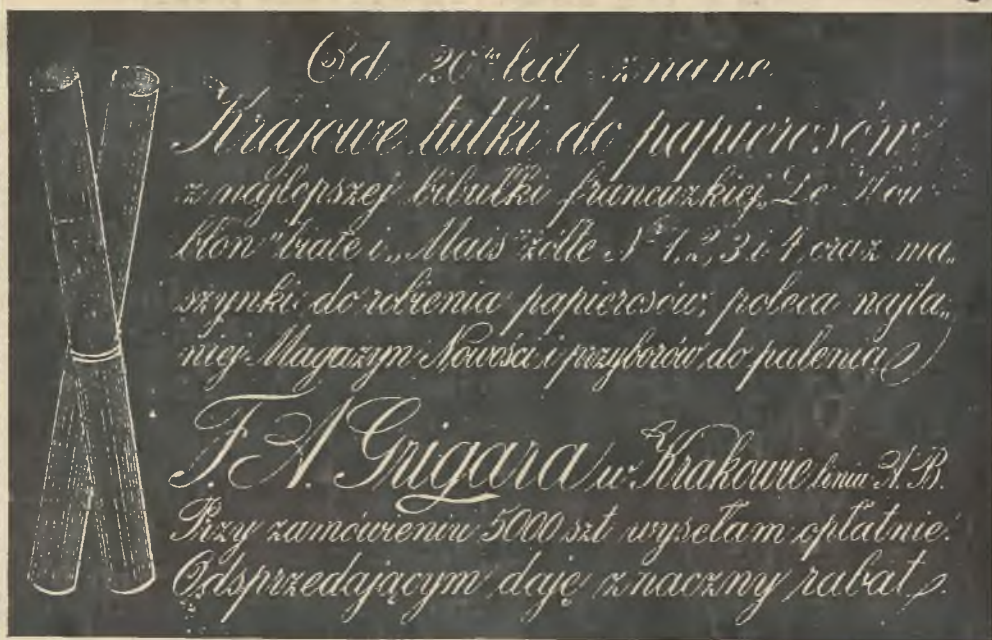 Od 20tu lat znane
Krajowe tutki do papierosów
z najlepszej bibułki francuzkiej „Le Hou
blon" białe i „Mais" żółte No 1, 2, 3 i 4, oraz ma„
szynki do robienia papierosów; poleca najta„
niej Magazyn Nowości i przyborów do palenia
F. A. Grigara w Krakowie linia A. B.
Przy zamówieniu 5000 szt wysełam opłatnie.
Odsprzedającym daję znaczny rabat.